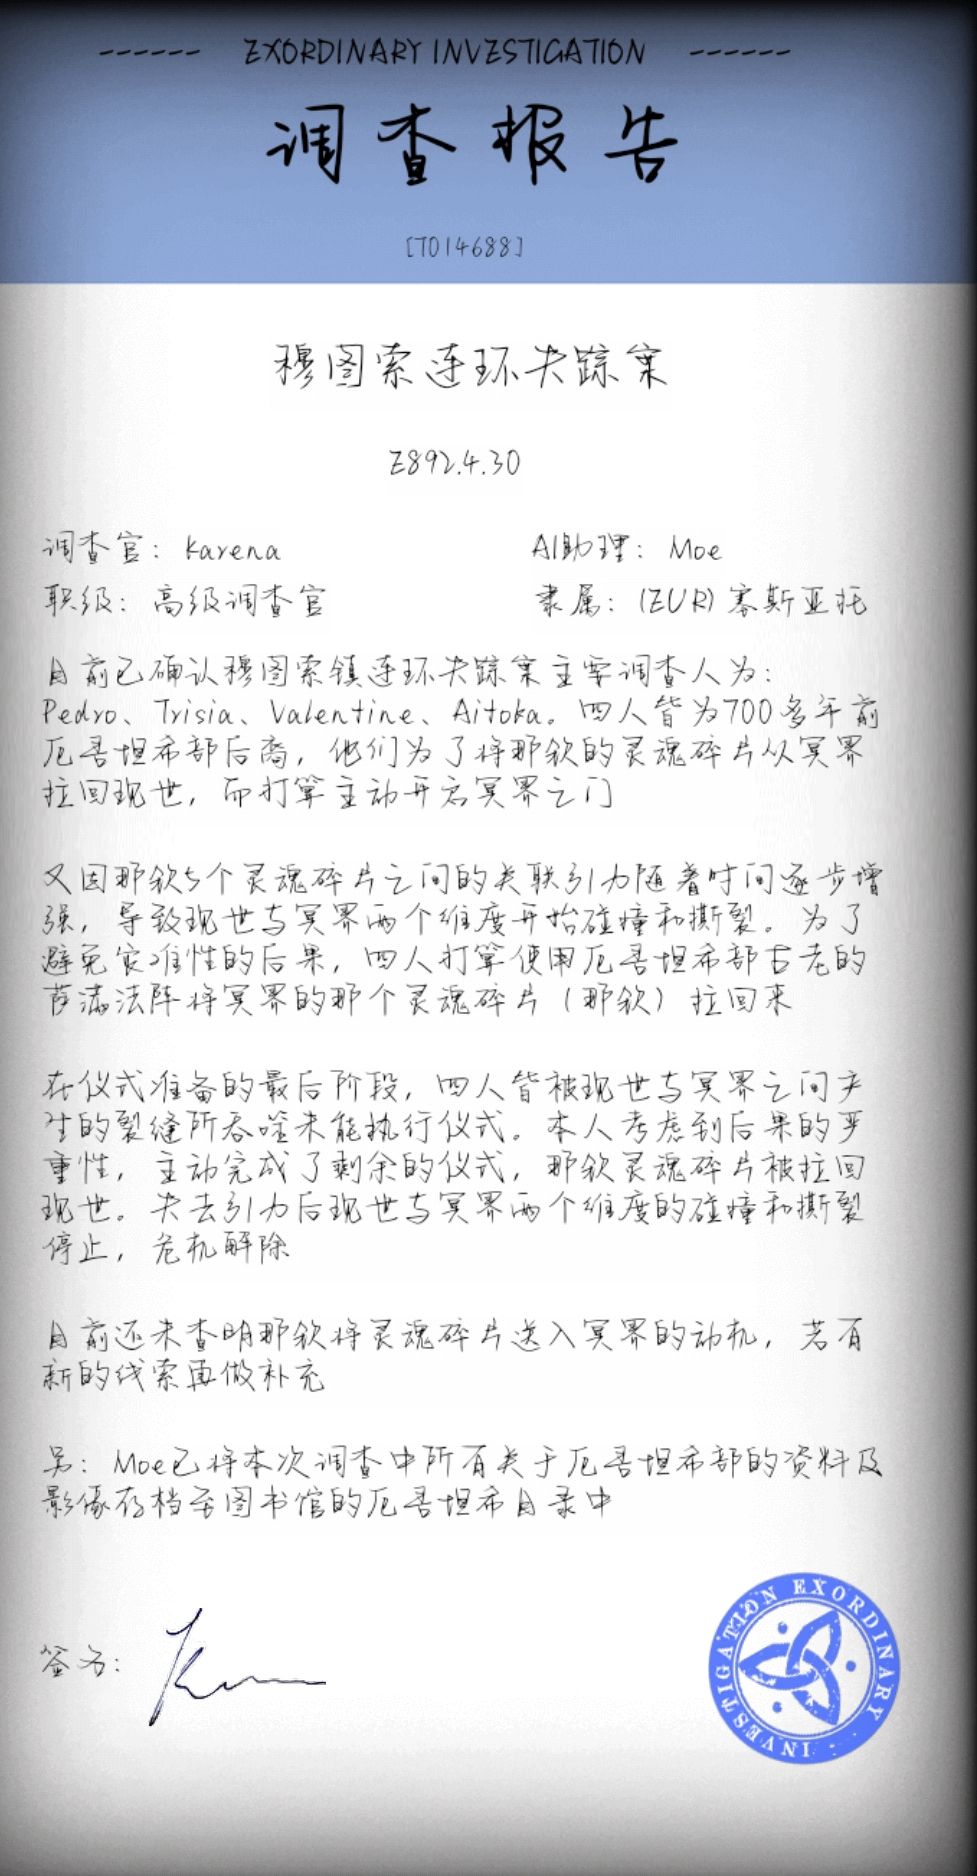 ------ EXORDINARY INVESTIGATION ------
调查报告
[T014688]
穆图索连环失踪案
Z892.4.30
调查官：Karena
AI助理：Moe
职级：高级调查官
隶属：(ZUR)赛斯亚托
目前已确认穆图索镇连环失踪案主要调查人为：
Pedro、Trisia、Valentine、Aitoka。四人皆为700多年前
厄吾坦希部后裔，他们为了将那钦的灵魂碎片从冥界
拉回现世，而打算主动开启冥界之门
又因那钦5个灵魂碎片之间的关联引力随着时间逐步增
强，导致现世与冥界两个维度开始碰撞和撕裂。为了
避免灾难性的后果，四人打算使用厄吾坦希部古老的
萨满法阵将冥界的那个灵魂碎片（那钦）拉回来
在仪式准备的最后阶段，四人皆被现世与冥界之间产
生的裂缝所吞噬未能执行仪式。本人考虑到后果的严
重性，主动完成了剩余的仪式，那钦灵魂碎片被拉回
现世。失去引力后现世与冥界两个维度的碰撞和撕裂
停止，危机解除
目前还未查明那钦将灵魂碎片送入冥界的动机，若有
新的线索再做补充
另：Moe已将本次调查中所有关于厄吾坦希部的资料及
影像存档至图书馆的厄吾坦希目录中
签名：
EXORDINARY INVESTIGATION